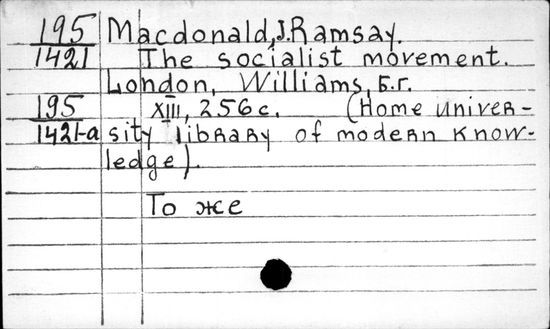 195 Macdonald, J. Ramsay.
1421 The socialist movement.
London, Williams, б.г.
195 XIII, 256 с. (Home univer-
1421-a sity library of modern know-
ledge).
То же